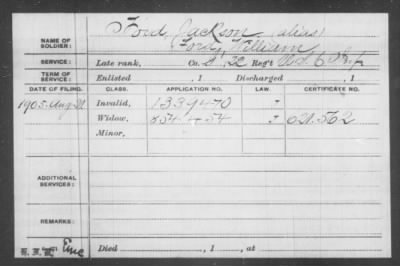 NAME OF SOLDIER: Ford, Jackson (alias)
Ford, William
SERVICE: Late rank, Co. D, 22 Reg't U.S.C. Inf
TERM OF SERVICE: Enlisted , 1 Discharged , 1
DATE OF FILING. CLASS. APPLICATION NO. LAW. CERTIFICATE NO.
1905-Aug-21 Invalid, 1339470
Widow, 854 454 621.562
Minor,
ADDITIONAL SERVICES:
REMARKS:
Died , 1 , at